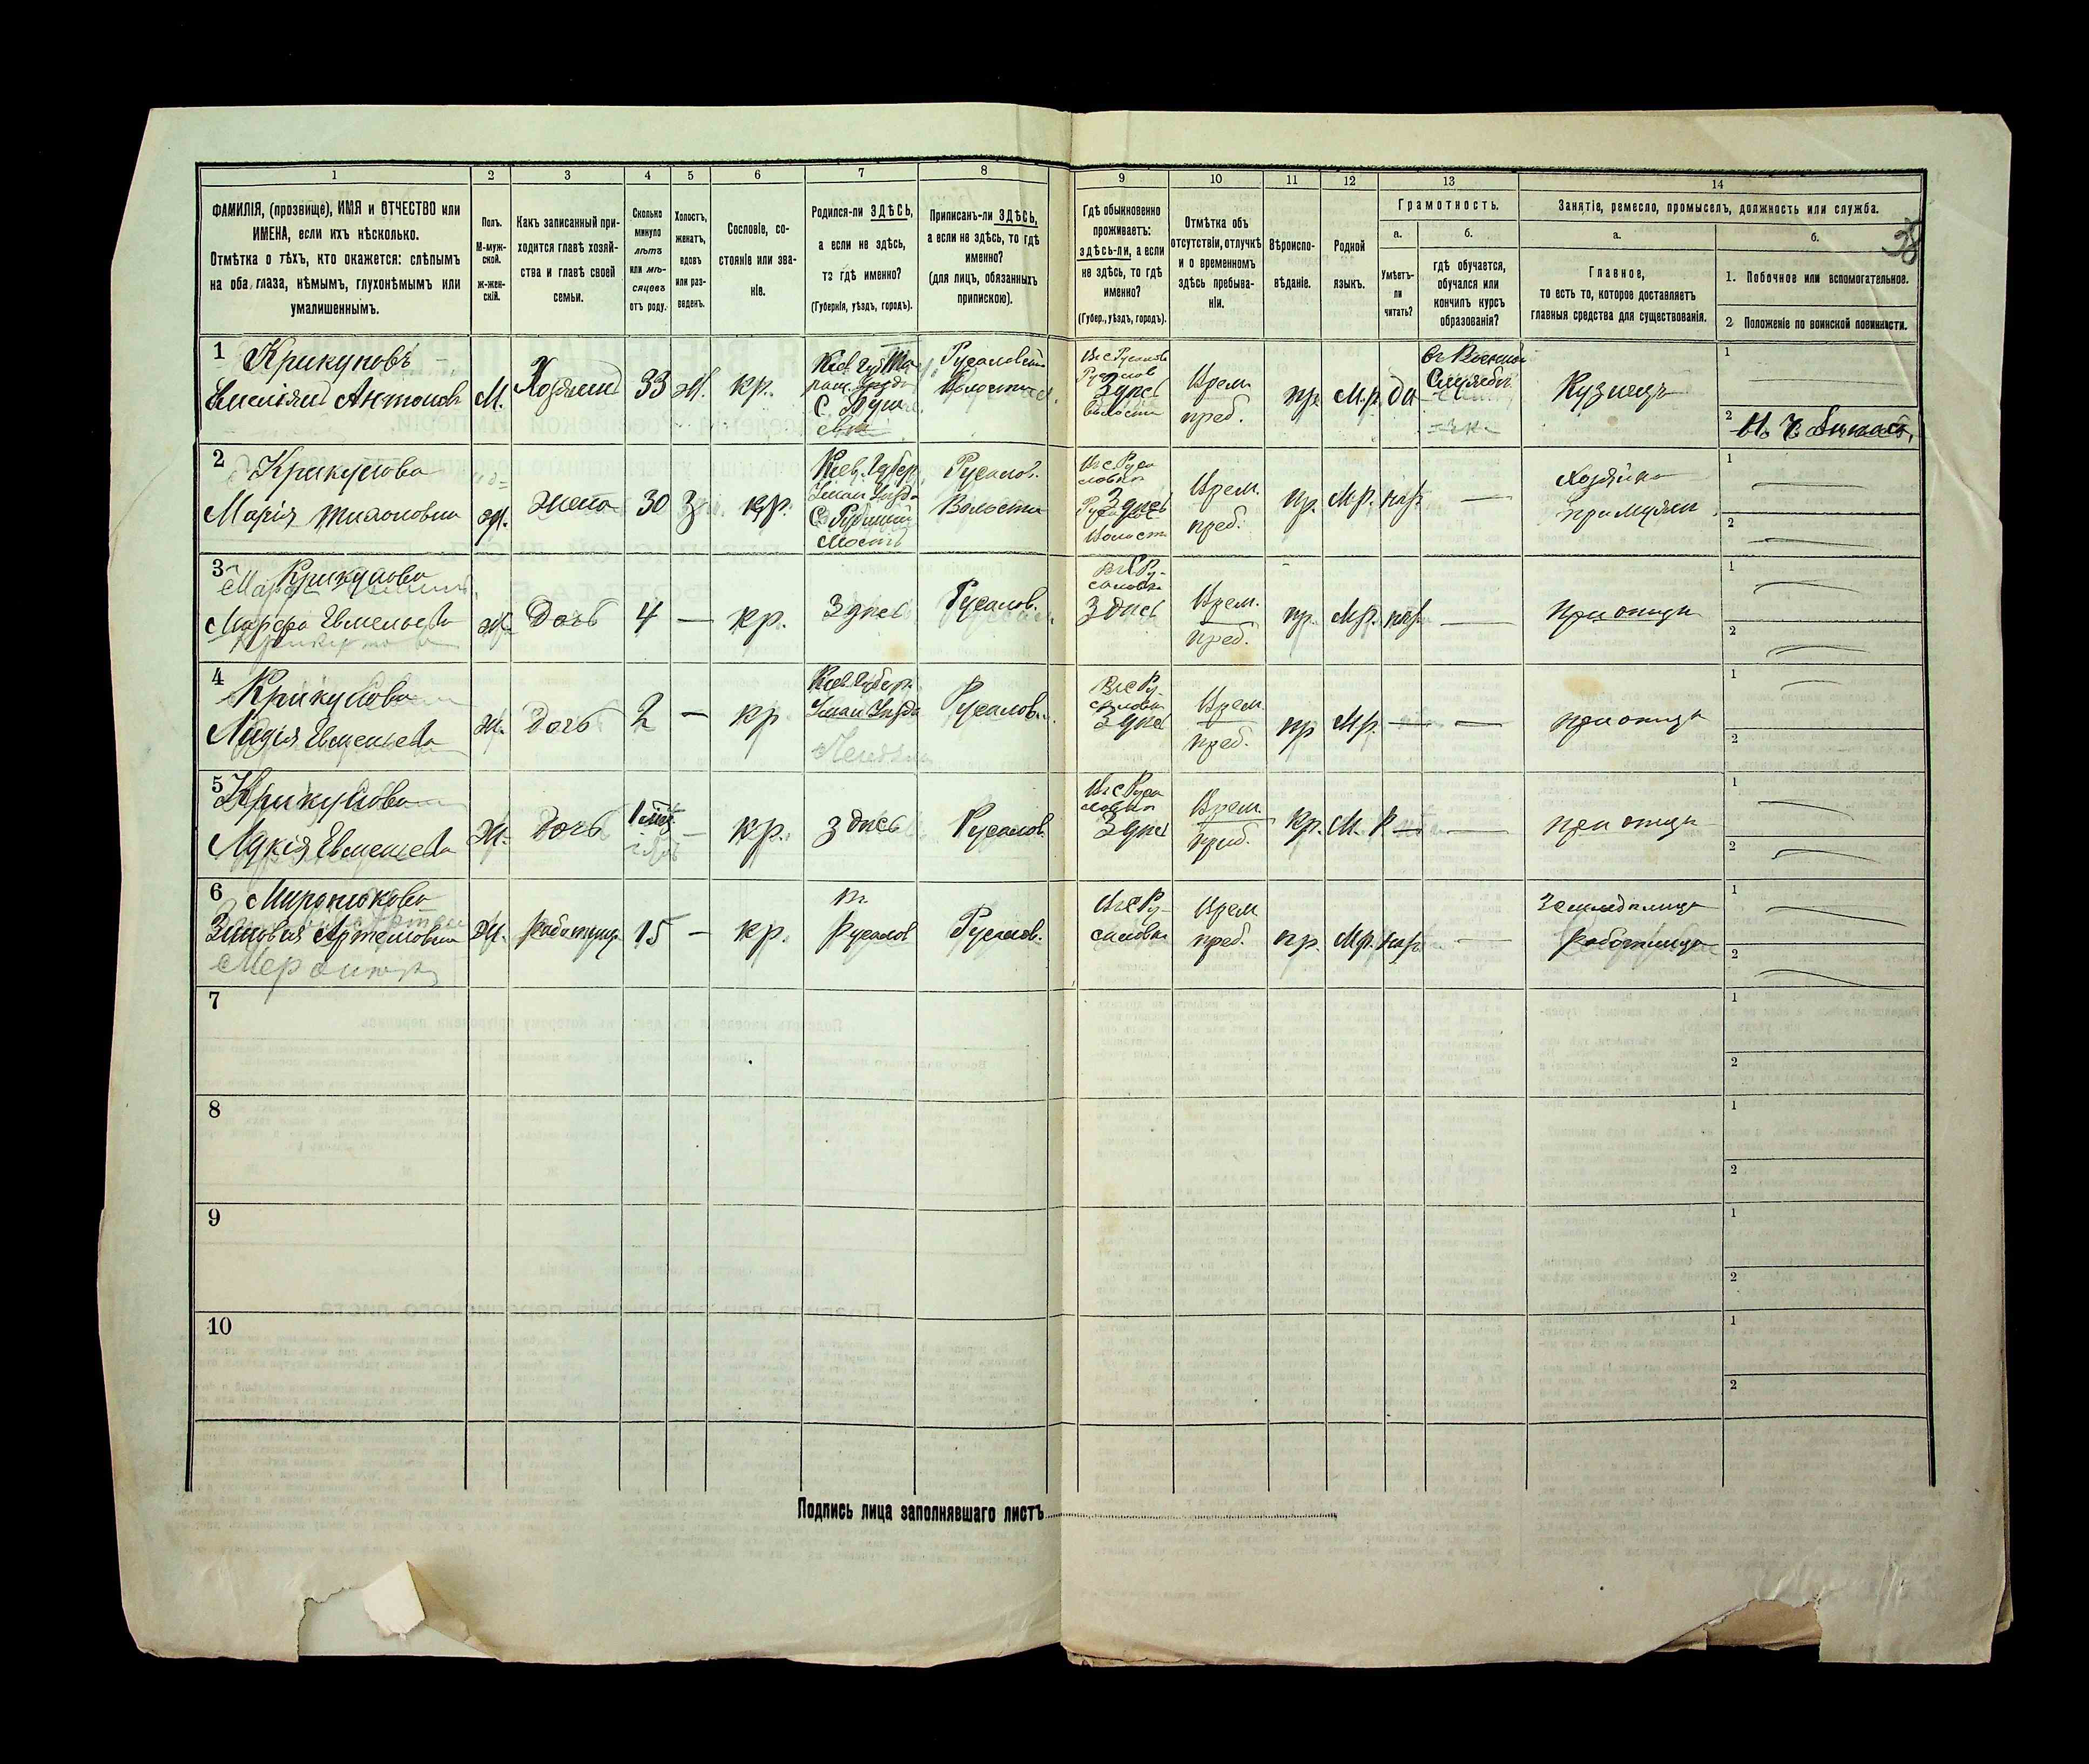 1
2
3
4
5
6
7
8
9
10
11
12
13
14
ФАМИЛІЯ, (прозвище), ИМЯ и ОТЧЕСТВО или
ИМЕНА, если ихъ нѣсколько.
Отмѣтка о тѣхъ, кто окажется: слѣпымъ
на оба глаза, нѣмымъ, глухонѣмымъ или
умалишеннымъ.
Полъ.
М-муж-
ской.
ж-жен-
скій.
Какъ записанный при-
ходится главѣ хозяй-
ства и главѣ своей
семьи.
Сколько
минуло
лѣтъ
или мѣ-
сяцевъ
отъ роду.
Холостъ,
женатъ,
вдовъ
или раз-
веденъ.
Сословіе, со-
стояніе или зва-
ніе.
Родился-ли ЗДѢСЬ,
а если не здѣсь,
то гдѣ именно?
(Губернія, уѣздъ, городъ).
Приписанъ-ли ЗДѢСЬ,
а если не здѣсь, то гдѣ
именно?
(для лицъ, обязанныхъ
припискою).
Гдѣ обыкновенно
проживаетъ:
здѣсь-ли, а если
не здѣсь, то гдѣ
именно?
(Губер., уѣздъ, городъ).
Отмѣтка объ
отсутствіи, отлучкѣ
и о временномъ
здѣсь пребыва-
ніи.
Вѣроиспо-
вѣданіе.
Родной
языкъ.
Грамотность.
а.
Умѣетъ-
ли
читать?
б.
гдѣ обучается,
обучался или
кончилъ курсъ
образованія?
Занятіе, ремесло, промыселъ, должность или служба.
а.
Главное,
то есть то, которое доставляетъ
главныя средства для существованія.
б.
1. Побочное или вспомогательное.
2 Положеніе по воинской повинности.
38
1 Крикуновъ
Антоновъ
М.
Хозяинъ
33
ж.
кр.
С.
Русаловской
Волости
Здѣсь
Врем.
преб.
пр.
М.р.
да
Въ Военной
Службѣ
Кузнецъ
1
2
2 Крикунова
Марія Тихоновна
ж.
жена
30
З.
кр.
Кіев. Губер.
Уман. Уѣзда
Русалов.
Волости
Здѣсь
Врем.
преб.
пр.
М.р.
нѣт
—
Хозяйка
при мужѣ
1
2
3 Крикунова
Марфа Евменьева
ж.
Дочь
4
—
кр.
Здѣсь
Русалов.
Здѣсь
Врем.
преб.
пр.
М.р.
нѣт
—
при отцѣ
1
2
4 Крикунова
Лидія Евменьева
ж.
Дочь
2
—
кр.
Кіев. Губер.
Уман. Уѣзда
Русалов.
Здѣсь
Врем.
преб.
пр.
М.р.
—
—
при отцѣ
1
2
5 Крикунова
Евменьева
ж.
Дочь
—
кр.
Здѣсь
Русалов.
Здѣсь
Врем.
преб.
М. Р
—
—
при отцѣ
1
2
6 Миронюкова
Артемовна
ж.
Работниц.
15
—
кр.
Русалов
Русалов.
Врем
преб.
пр.
М.р.
нѣт
—
Работница
1
2
7
1
2
8
1
2
9
1
2
10
1
2
Подпись лица заполнявшаго листъ